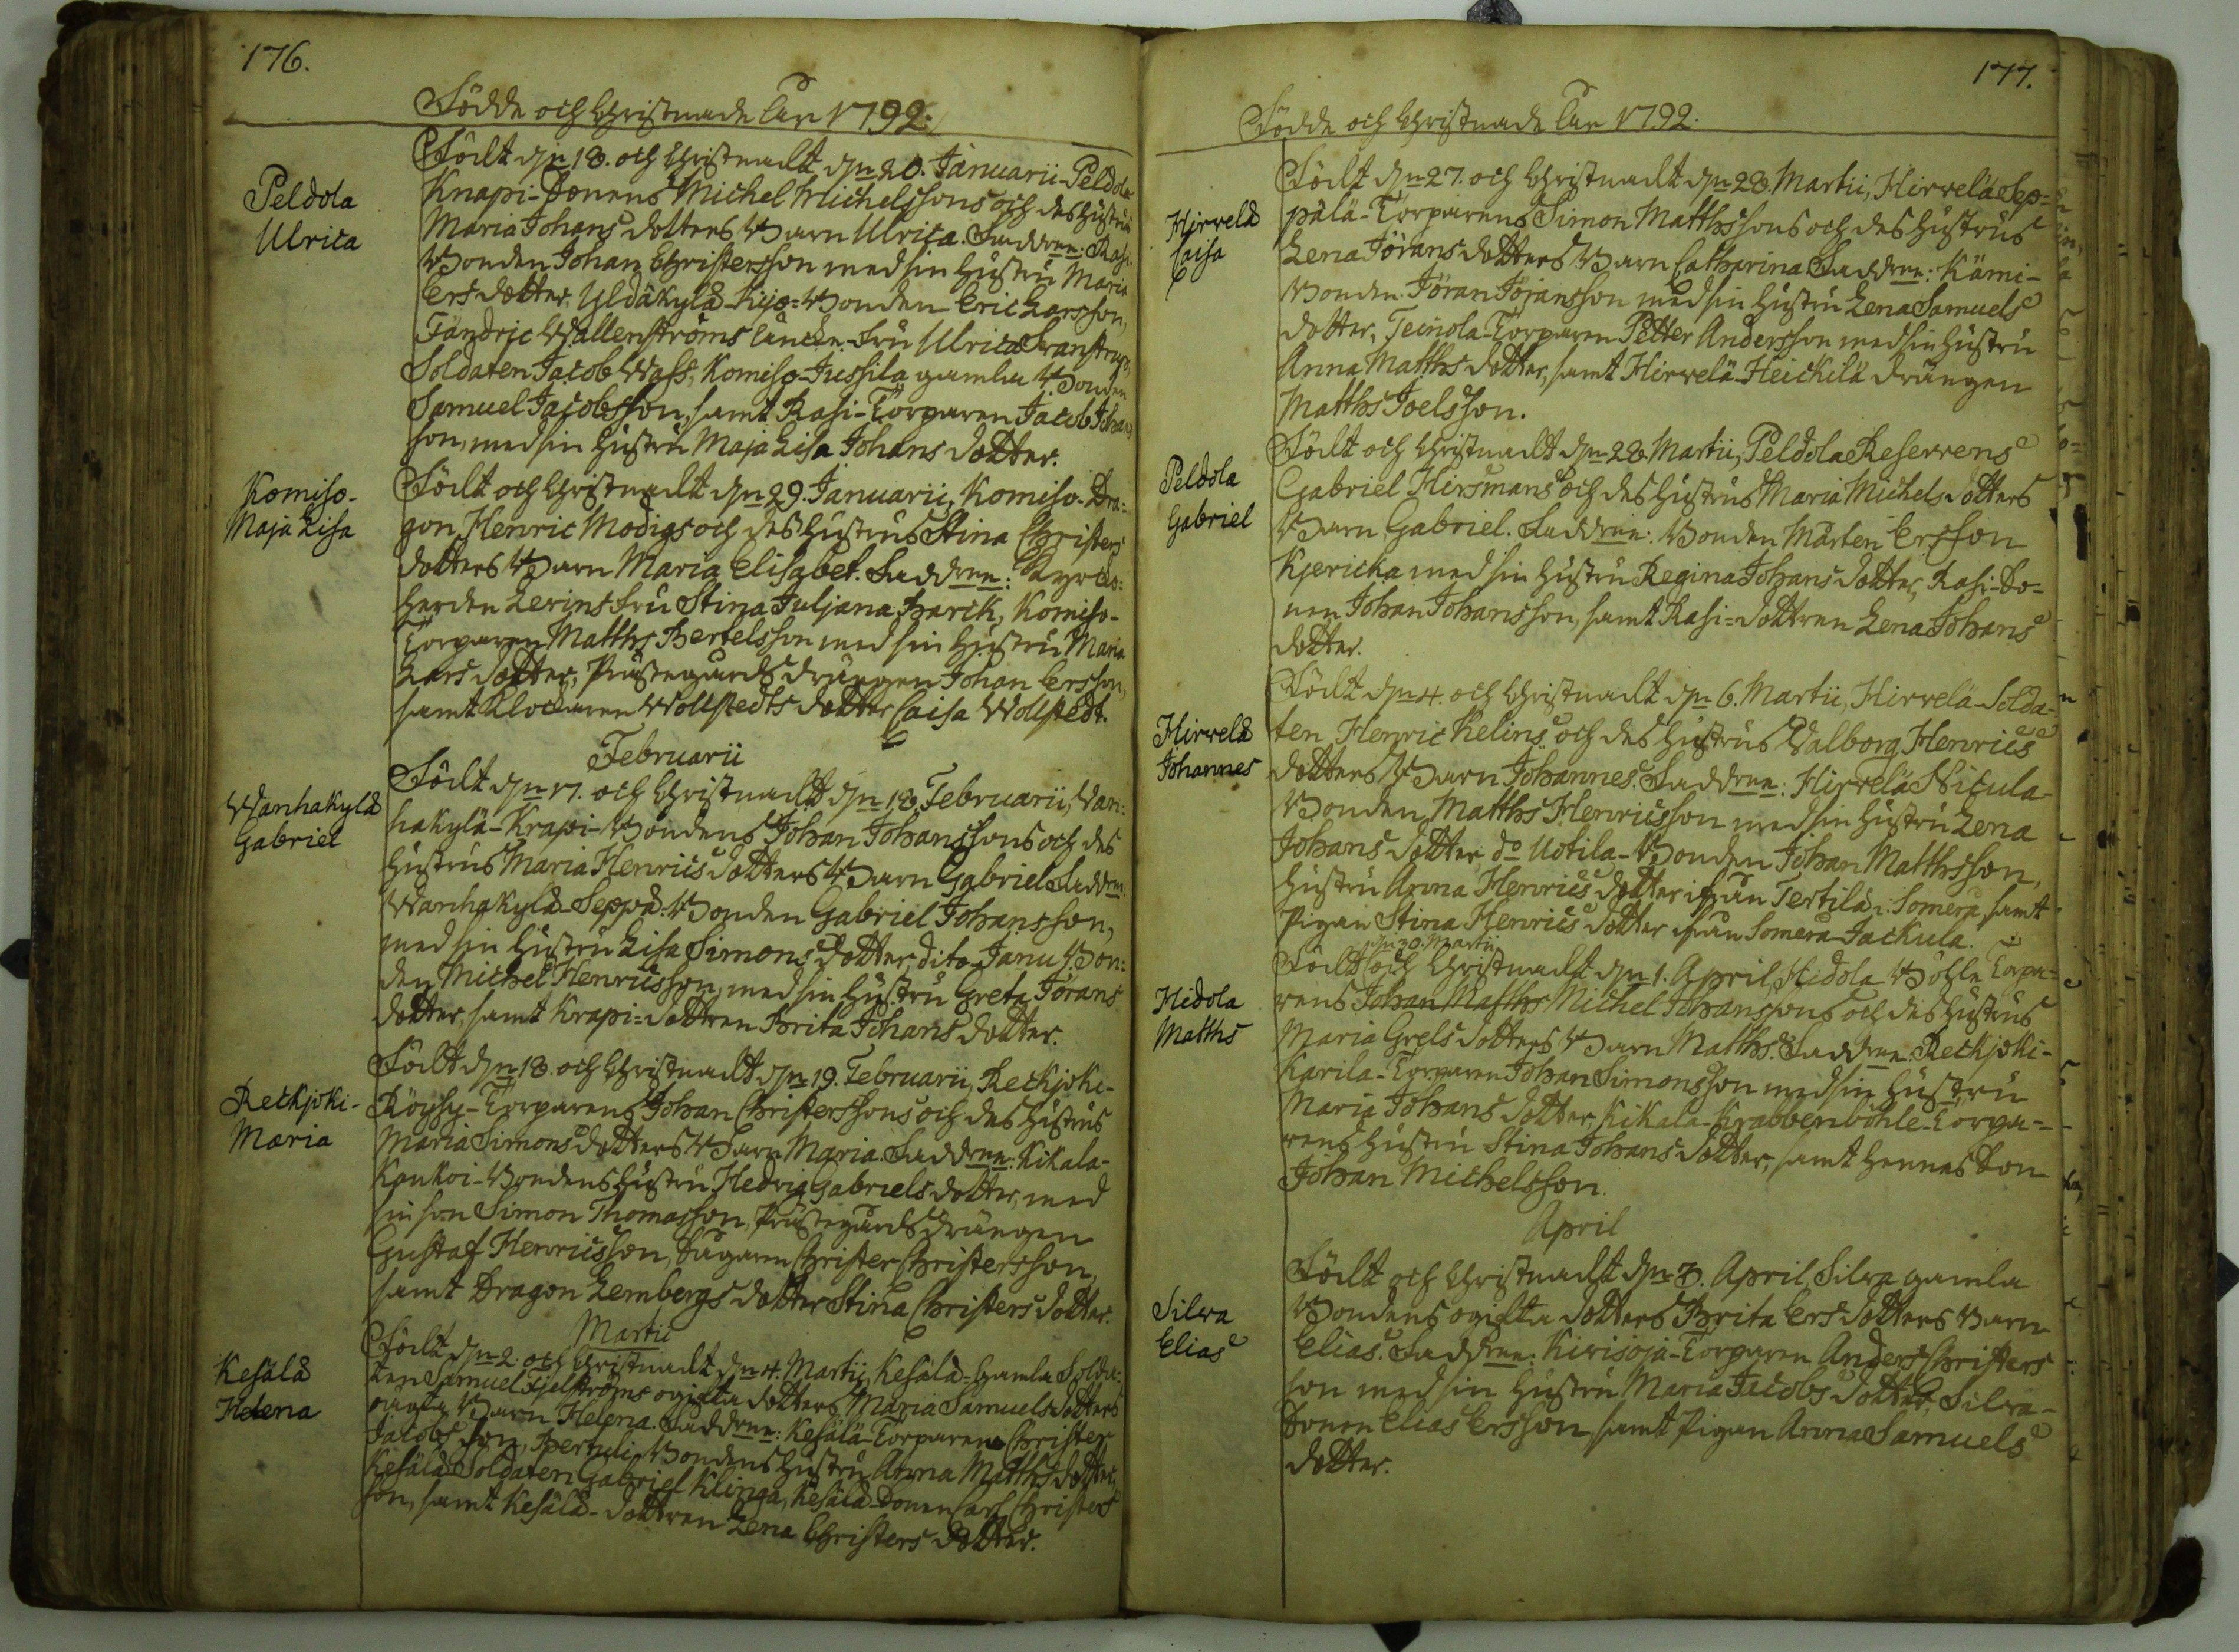 176.
Födde och Christnade År 1792.
Peldola
Ulrica
Födt den 18. och Christnadt den 20. Januarii Peldola
Knapi-Sonens Michel Michelssons och des hustrus
Maria Johans dotters Barn Ulrica. Faddrne: Rasi-
Bonden Johan Christersson med sin hustru Maria
Ers dotter, Yldäkylä Kijo-Bonden Eric Larsson,
Fändric Wallenströms Fru Ulrica
Soldaten Jacob Wass, Komiso-Jussila gamla Bonden
Samuel Jacobsson, samt Rasi-Torparen Jacob Johans
son, med sin hustru Maja Lisa Johans dotter.
Komiso-
Maja Lisa
Födt och Christnadt den 29. Januarii, Komiso-Dra-
gon Henric Modigs och des hustrus Stina Christers
dotters Barn Maria Elisabet. Faddrne: Kyrko-
herden Levins fru Stina Juljana Barck, Komiso-
Torparen Matths Bertelsson med sin hustru Maria
Lars dotter, Prästegårds drängen Johan Ersson,
samt Klockaren Wollstedts dotter Caisa Wollstedt.
Februarii
Wanhakylä
Gabriel
Födt den 17. och Christnadt den 18. Februarii, Wan-
hakylä-Krapi-Bondens Johan Johanssons och des
hustrus Maria Henrics dotters Barn Gabriel. Faddrne:
Wanhakylä-Seppä-Bonden Gabriel Johansson,
med sin hustru Lisa Simons dotter, dito Janu Bon-
den Michel Henricsson, med sin hustru Greta Jörans
dotter, samt Krapi-dottren Brita Johans dotter.
Reckjoki-
Maria
Födt den 18. och Christnadt den 19. Februarii, Reckjoki-
Röyhy-Torparens Johan Christerssons och des hustrus
Maria Simons dotters Barn Maria. Faddrne: Kikala-
Koukoi-Bondens hustru Hedvig Gabriels dotter, med
sin son Simon Thomasson, Prästegårds drängen
Gustaf Henricsson, Christer Christersson,
samt Dragon Lembergs dotter Stina Christers dotter.
Martii
Kesälä
Helena
Födt den 2. och Christnadt den 4. Martii, Kesälä-gamla Solda-
ten Samuel Fjelströms ogifta dotters Maria Samuels dotters
oägta Barn Helena. Faddrne: Kesälä-Torparen Christer
Jacobs son, Pertuli-Bondens hustru Anna Matths dotter,
Kesälä Soldaten Gabriel Klinga, Kesälä-Sonen Carl Christers
son, samt Kesälä-dottren Lena Christers dotter.
177.
Födde och Christnade År 1792.
Hirvelä
Caisa
Födt den 27. och Christnadt den 28. Martii, Hirvelä Sep-
pälä-Torparens Simon Matthssons och des hustrus
Lena Jörans dotters Barn Catharina. Faddrne: Kämi-
Bonden Jöran Jöransson med sin hustru Lena Samuels
dotter, Teinola-Torparen Petter Andersson med sin hustru
Anna Matths dotter, samt Hirvelä-Heickilä drängen
Matths Joelsson.
Peldola
Gabriel
Födt och Christnadt den 28. Martii, Peldola Reservens
Gabriel Hirsmans och des hustrus Maria Michels dotters
Barn Gabriel. Faddrne: Bonden Mårten Ersson
Kjericka med sin hustru Regina Johans dotter, Rasi-So-
nen Johan Johansson, samt Rasi-dottren Lena Johans
dotter.
Hirvelä
Johannes
Födt den 4. och Christnadt den 6. Martii, Hirvelä-Solda-
ten Henric Kelins och des hustrus Walborg Henrics
dotters Barn Johannes. Faddrne: Hirvelä Nicula-
Bonden Matths Henricsson med sin hustru Lena
Johans dotter, do Uotila-Bonden Johan Matthsson,
hustru Anna Henrics dotter ifrån Tertilä i Somero, samt
Pigan Stina Henrics dotter ifrån Somero-Jackula.
Hidola
Matths
den 30. Martii
Födt och Christnadt den 1. April, Hidola Böhle Torpa-
rens Johan Matths Michel Johanssons och des hustrus
Maria Grels dotters Barn Matths. Faddrne: Reckjoki-
Karila-Torparen Johan Simonsson med sin hustru
Maria Johans dotter, Kikala-Krabbenböhle-Torpa-
rens hustru Stina Johans dotter, samt hennes Son
Johan Michelsson.
April
Silva
Elias
Födt och Christnadt den 3. April, Silva gamla
Bondens ogifta dotters Brita Ers dotters Barn
Elias. Faddrne: Kirisoja-Torparen Anders Christers
son med sin hustru Maria Jacobs dotter, Silva-
Sonen Elias Ersson, samt Pigan Anna Samuels
dotter.